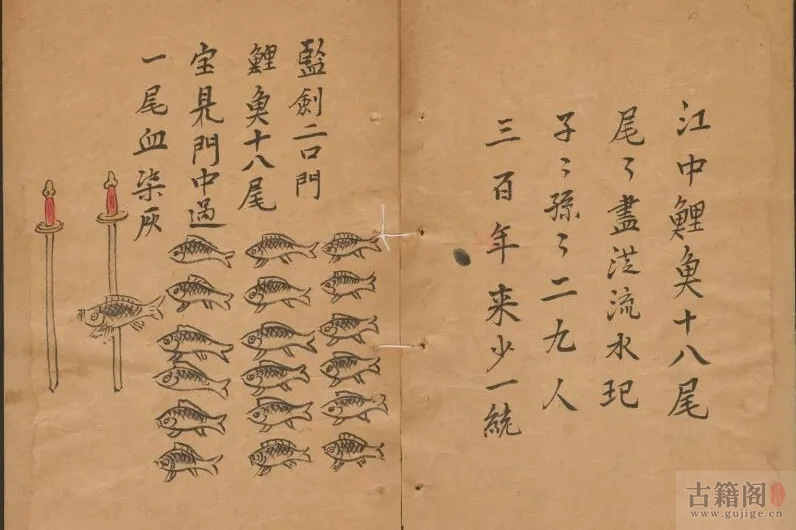 江中鯉魚十八尾
尾〻盡流水
子〻孫〻二九人
三百年来少一統
監劍二口門
鯉魚十八尾
宝見門中過
一尾血柒灰
古籍阁
www.gujige.cn